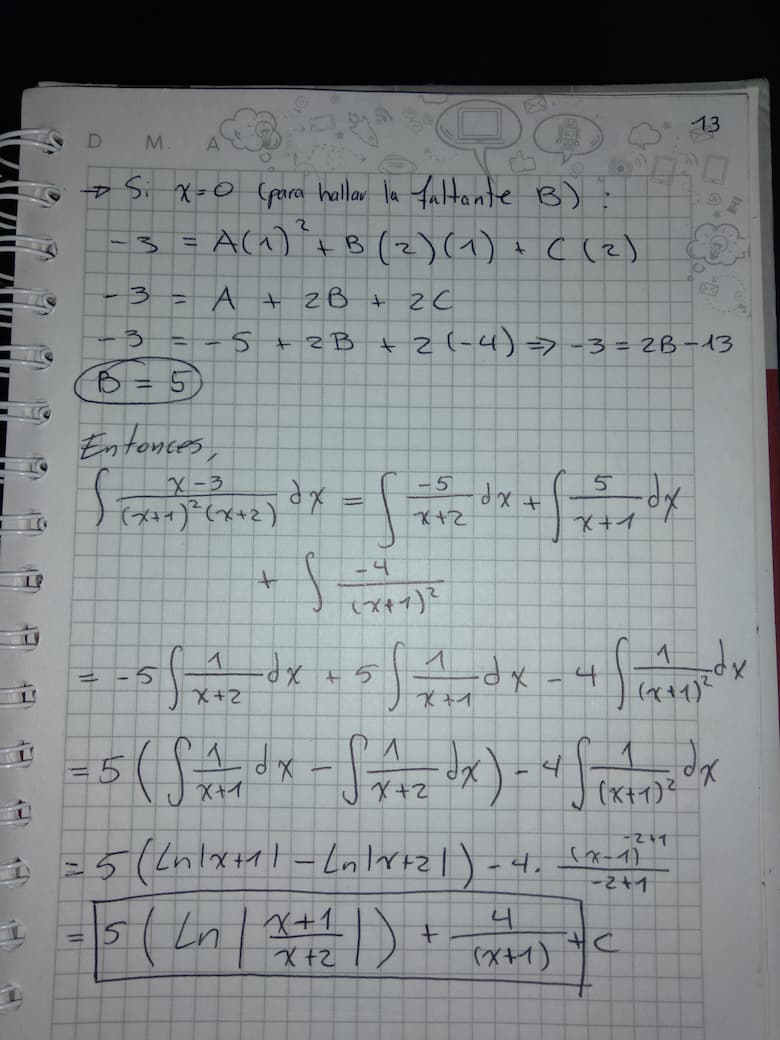 13
D M. A
→ Si x=0 (para hallar la faltante B) :
-3 = A(1)² + B(2)(1) + C(2)
-3 = A + 2B + 2C
-3 = -5 + 2B + 2(-4) ⇒ -3 = 2B-13
B = 5
Entonces,
∫ (x-3)/((x+1)²(x+2)) dx = ∫ (-5)/(x+2) dx + ∫ 5/(x+1) dx
+ ∫ (-4)/((x+1)²)
= -5 ∫ 1/(x+2) dx + 5 ∫ 1/(x+1) dx - 4 ∫ 1/((x+1)²) dx
= 5 ( ∫ 1/(x+1) dx - ∫ 1/(x+2) dx ) - 4 ∫ 1/((x+1)²) dx
= 5 (Ln|x+1| - Ln|x+2|) - 4 · (x-1)^(-2+1)/(-2+1)
= 5 ( Ln | (x+1)/(x+2) | ) + 4/((x+1)) + C